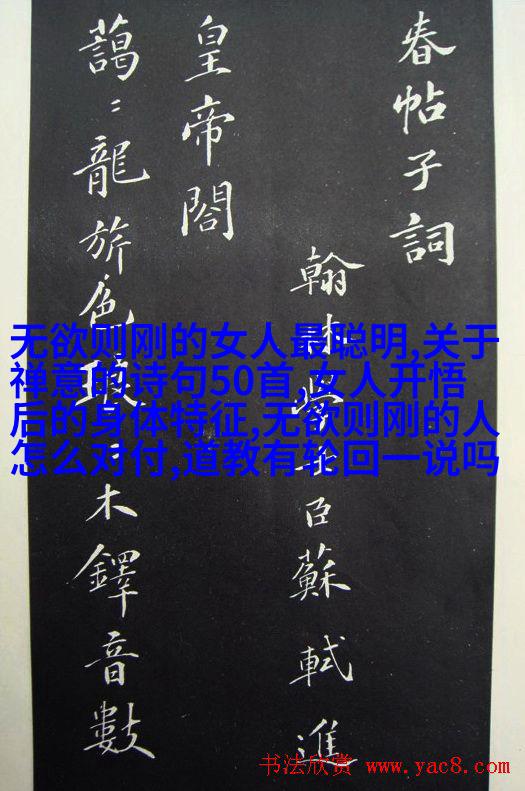 春帖子詞
翰林學士臣蘇軾進
皇帝閣
藹〻龍旂色琅〻木鐸音數
无欲则刚的女人最聪明,关于
禅意的诗句50首,女人开悟
后的身体特征,无欲则刚的人
怎么对付,道教有轮回一说吗
书法欣赏 www.yac8.com